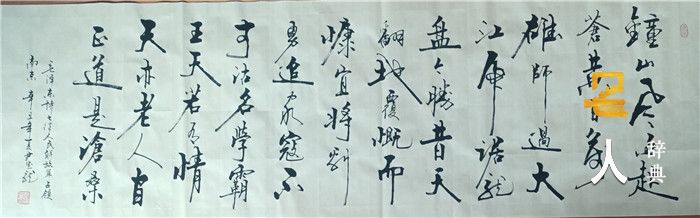 鐘山风雨起
蒼黄百万
雄師過大
江虎踞龍
盤今勝昔天
翻地覆慨而
慷宜將剩
勇追穷寇不
可沽名學霸
王天若有情
天亦老人间
正道是滄桑
毛泽东诗七律人民解放军占领
南京 辛丑年夏
人
辞典